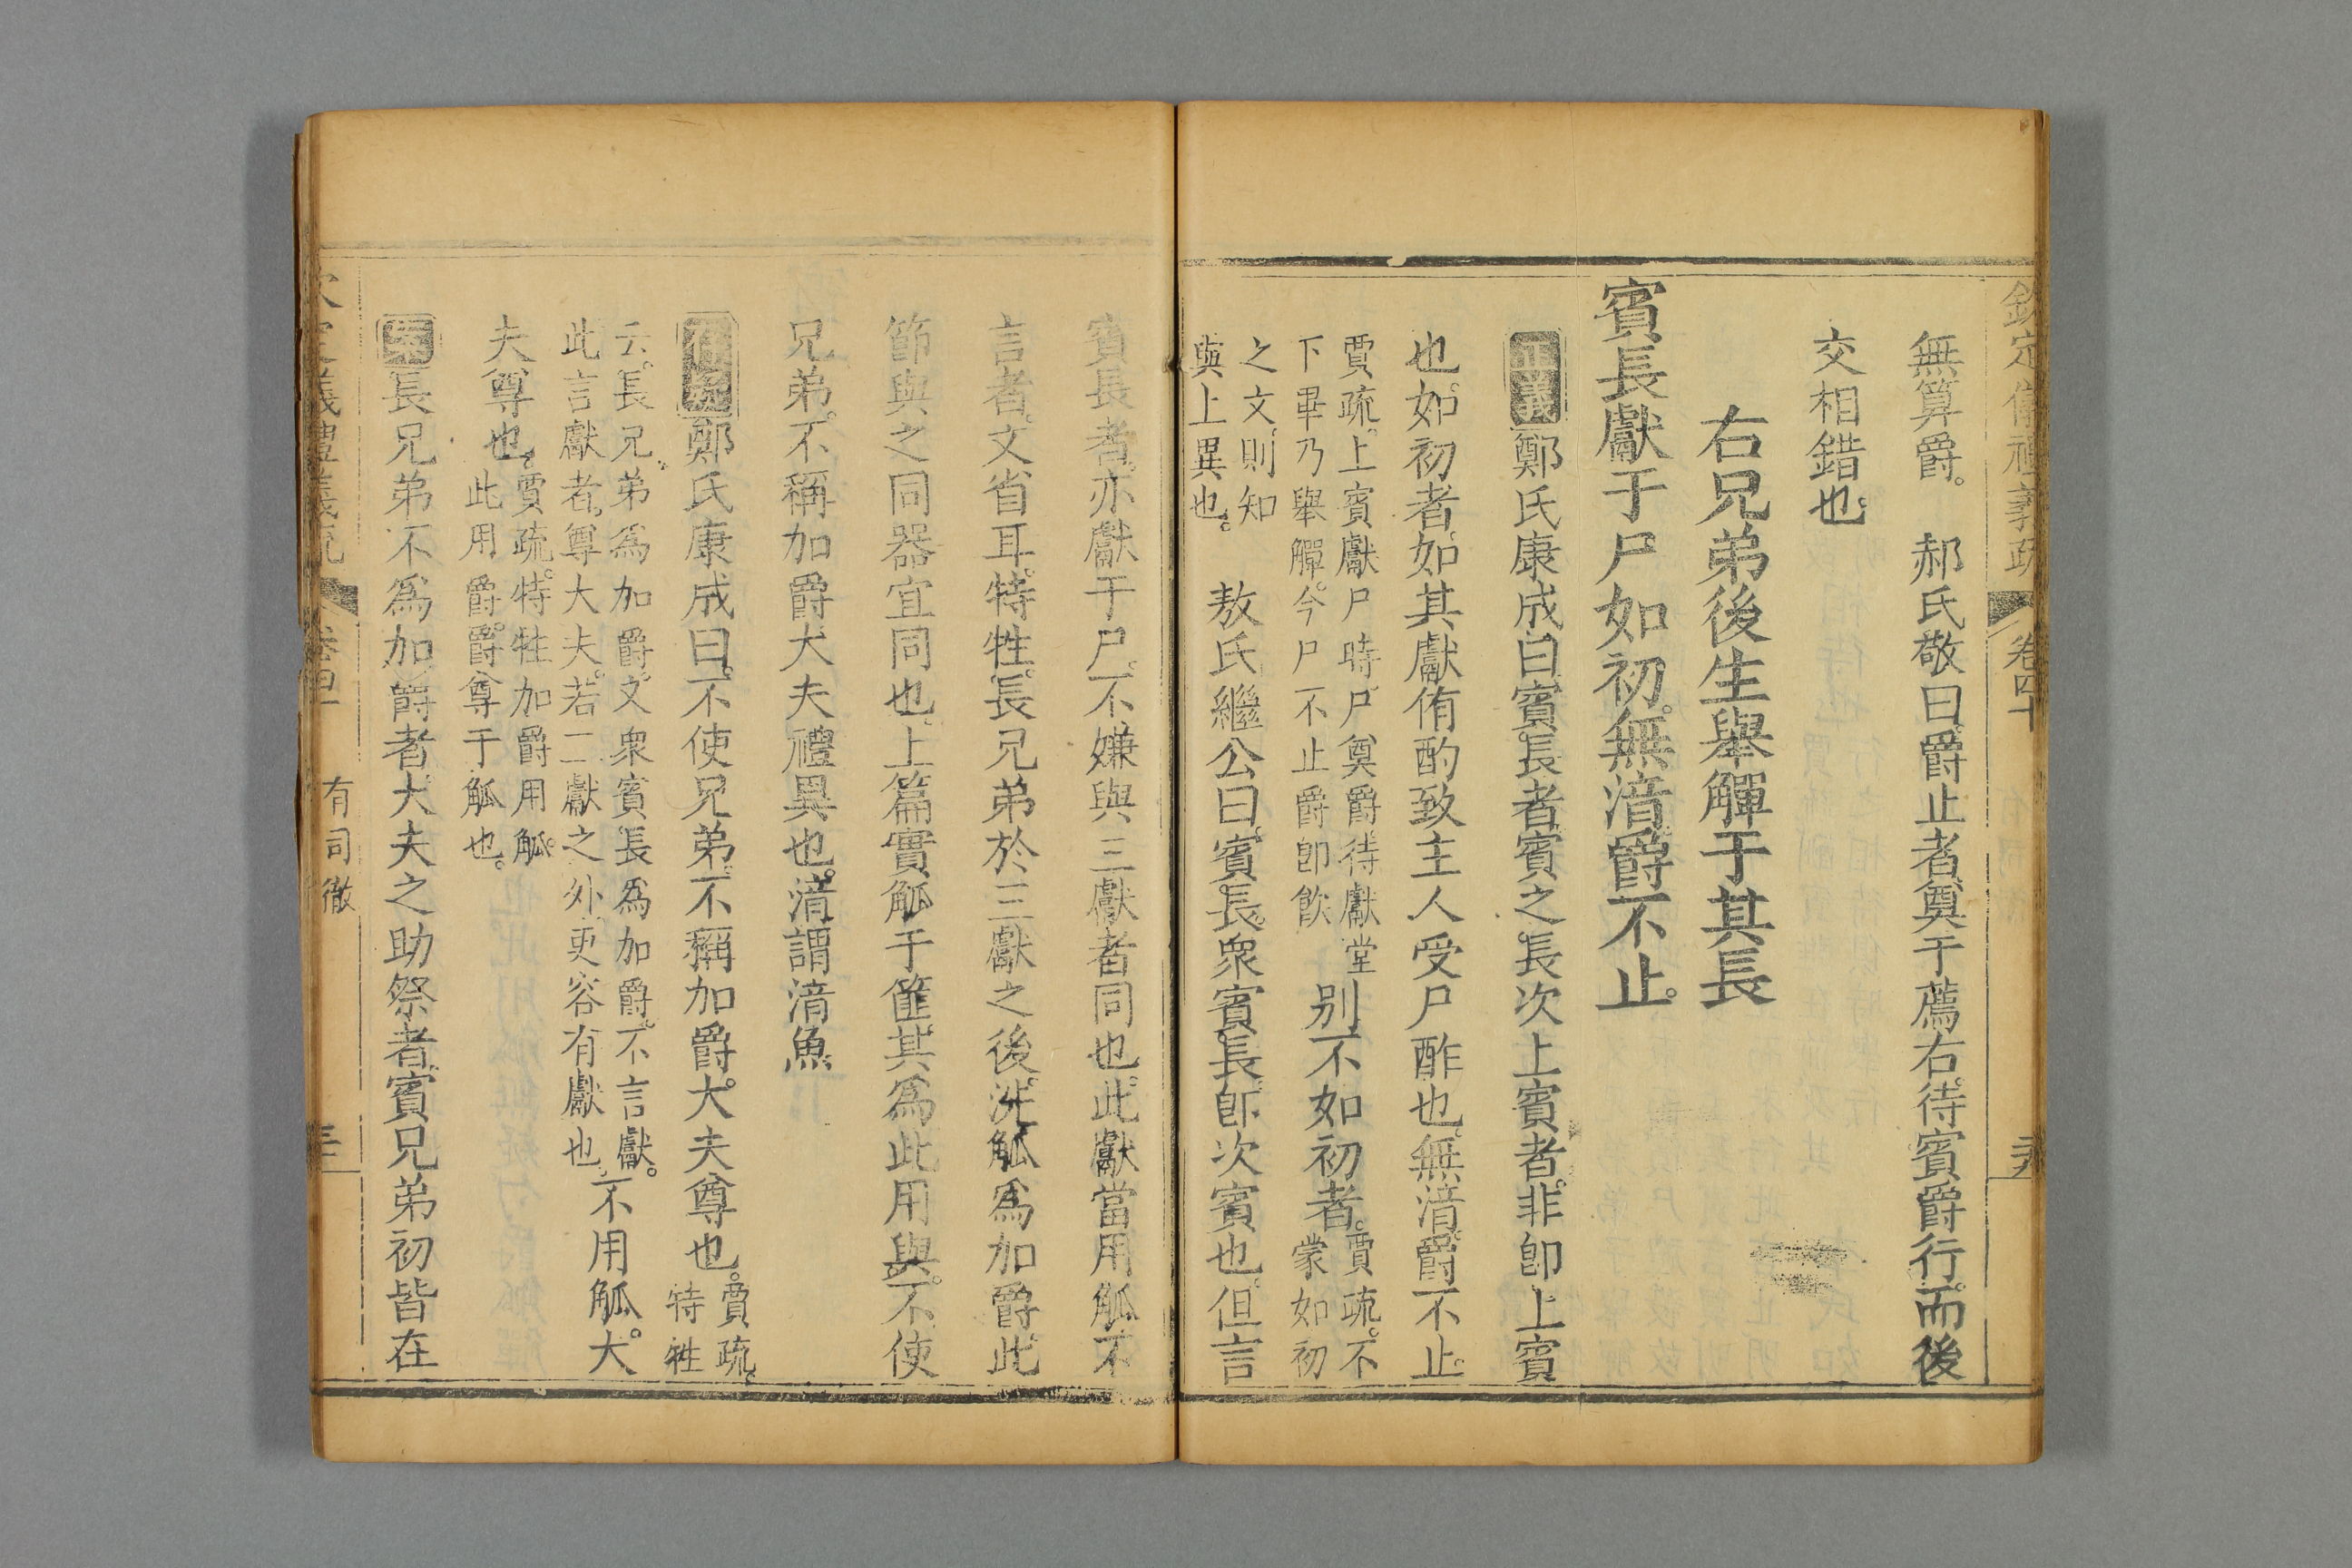 欽定儀禮義疏 卷四十
無算爵。 郝氏敬曰。爵止者。奠于薦右。待賓爵行。而後
交相錯也。
右兄弟後生舉觶于其長
賓長獻于尸。如初。無湆。爵不止。
正義鄭氏康成曰。賓長者。賓之長次上賓者。非卽上賓
也。如初者。如其獻侑酌致主人受尸酢也。無湆。爵不止。
賈疏。上賓獻尸時。尸奠爵。待獻堂
下畢乃舉觶。今尸不止爵卽飮
别不如初者。
賈疏。不
蒙如初
之文。則知
與上異也。
敖氏繼公曰。賓長。衆賓長。卽次賓也。但言
賓長者。亦獻于尸。不嫌與三獻者同也。此獻當用觚。不
言者。文省耳。特牲。長兄弟於三獻之後。洗觚爲加爵。此
節與之同。器宜同也。上篇實觚于篚。其爲此用與。不使
兄弟。不稱加爵。大夫禮異也。湆謂湆魚
鄭氏康成曰。不使兄弟。不稱加爵。大夫尊也。
賈疏。
特牲
云。長兄弟爲加爵。又衆賓長爲加爵。不言獻。
此言獻者。尊大夫。若二獻之外。更容有獻也。
不用觚。大
夫尊也。
賈疏。特牲加爵用觚。
此用爵。爵尊于觚也。
案長兄弟不爲加爵者。大夫之助祭者。賓兄弟初皆在
有司徹